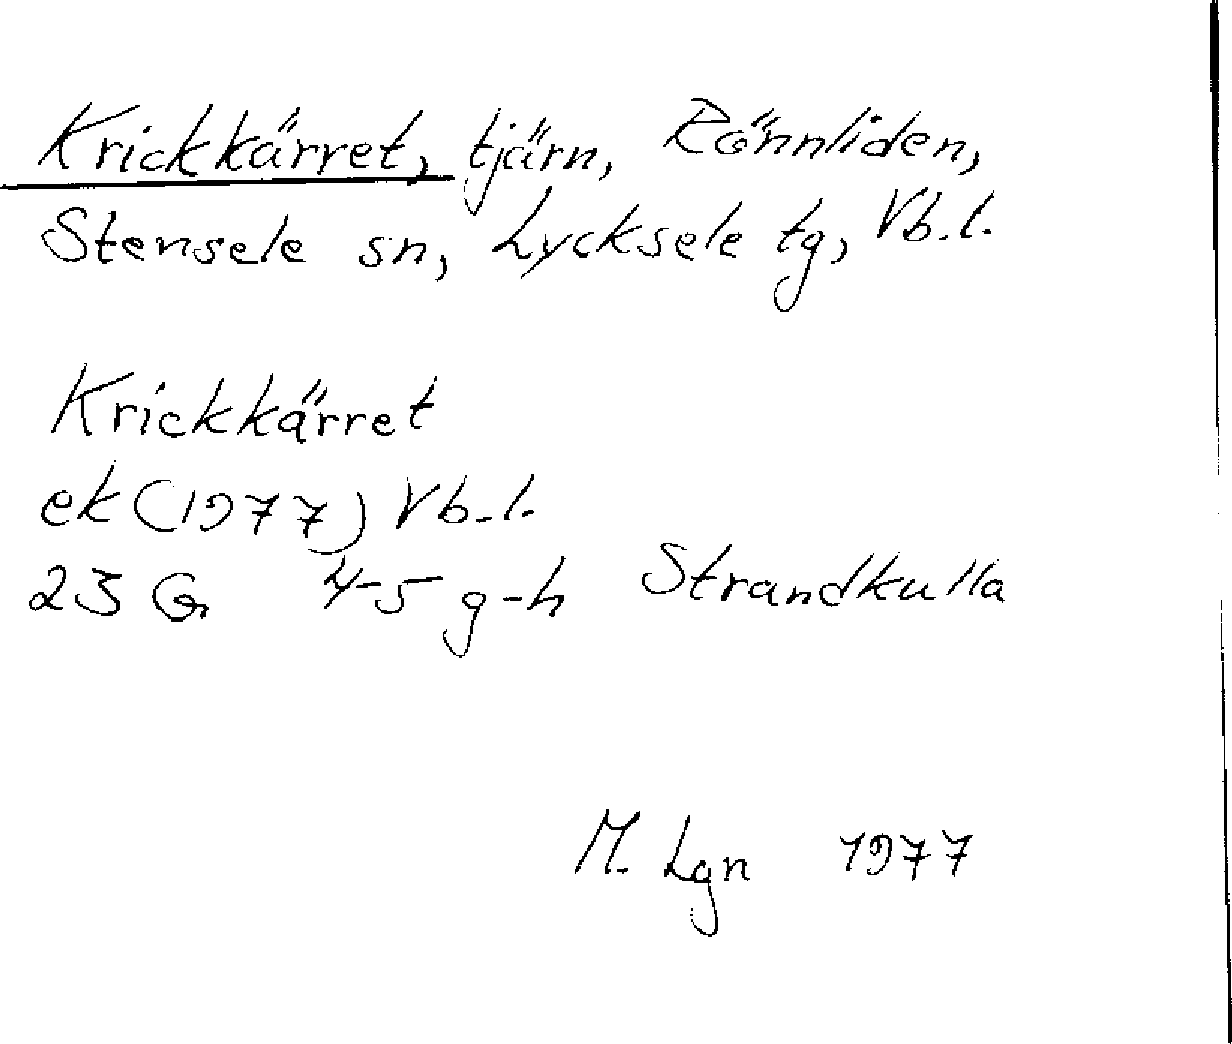 Krickkärret, tjärn, Rönnliden,
Stensele sn, Lycksele tg, Vb.l.
Krickkärret
ek (1977) Vb.l.
23 G 4-5 g-h Strandkulla
M. Lgn 1977